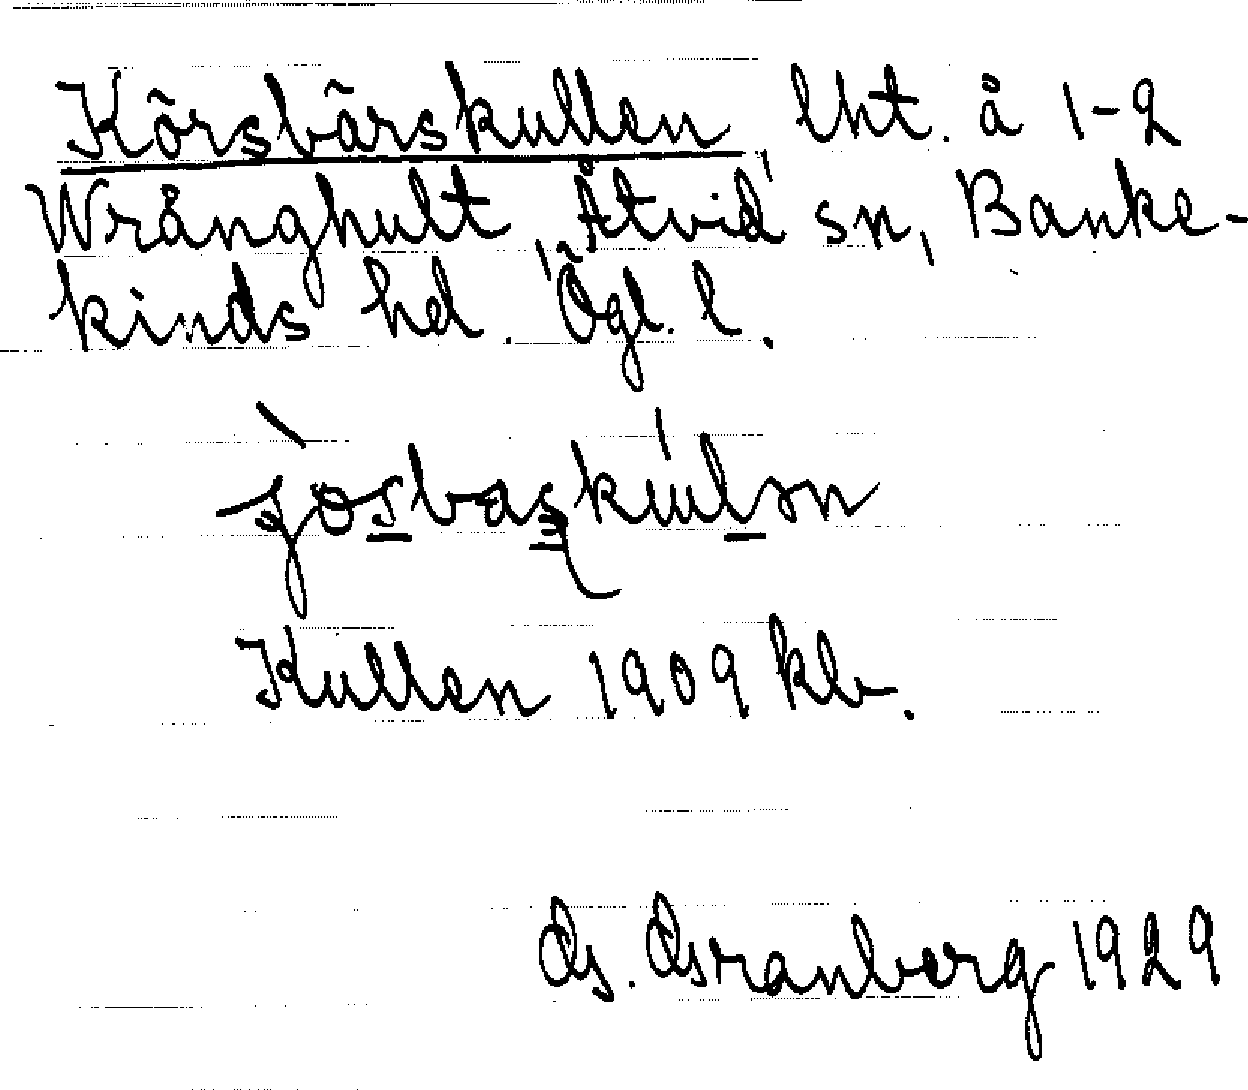 Körsbärskullen, lht. å 1-2
Wrånghult, Åtvid sn, Banke-
kinds hd. Ögl. l.
Kullen 1909 kb.
G. Granberg 1929